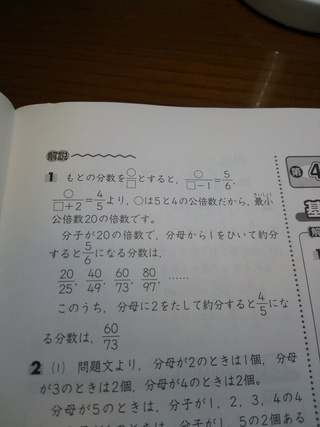 解説
1 もとの分数を○/□とすると、○/(□−1)=5/6、
○/(□+2)=4/5より、○は5と4の公倍数だから、最小
公倍数20の倍数です。
分子が20の倍数で、分母から1をひいて約分
すると5/6になる分数は、
20/25, 40/49, 60/73, 80/97, ……
このうち、分母に2をたして約分すると4/5にな
る分数は、60/73
2 (1) 問題文より、分母が2のときは1個、分母
が3のときは2個、分母が4のときは2個。
分母が5のときは、分子が1, 2, 3, 4の4
第4